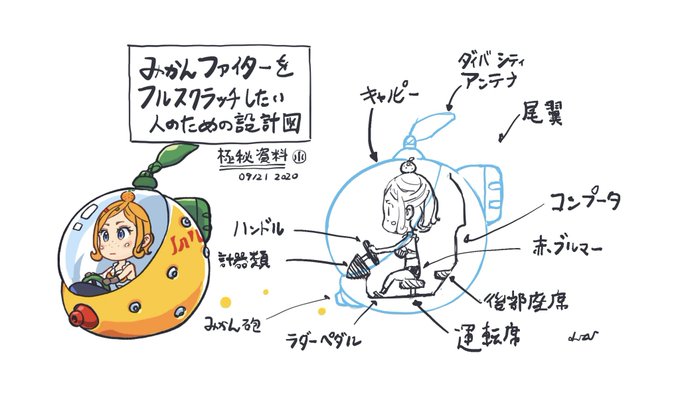 みかんファイターを
フルスクラッチしたい
人のための設計図
極秘資料
09/21 2020
ダイバシティ
アンテナ
キャノピー
尾翼
コンプータ
ハンドル
計器類
赤ブルマー
後部座席
みかん砲
ラダーペダル
運転席